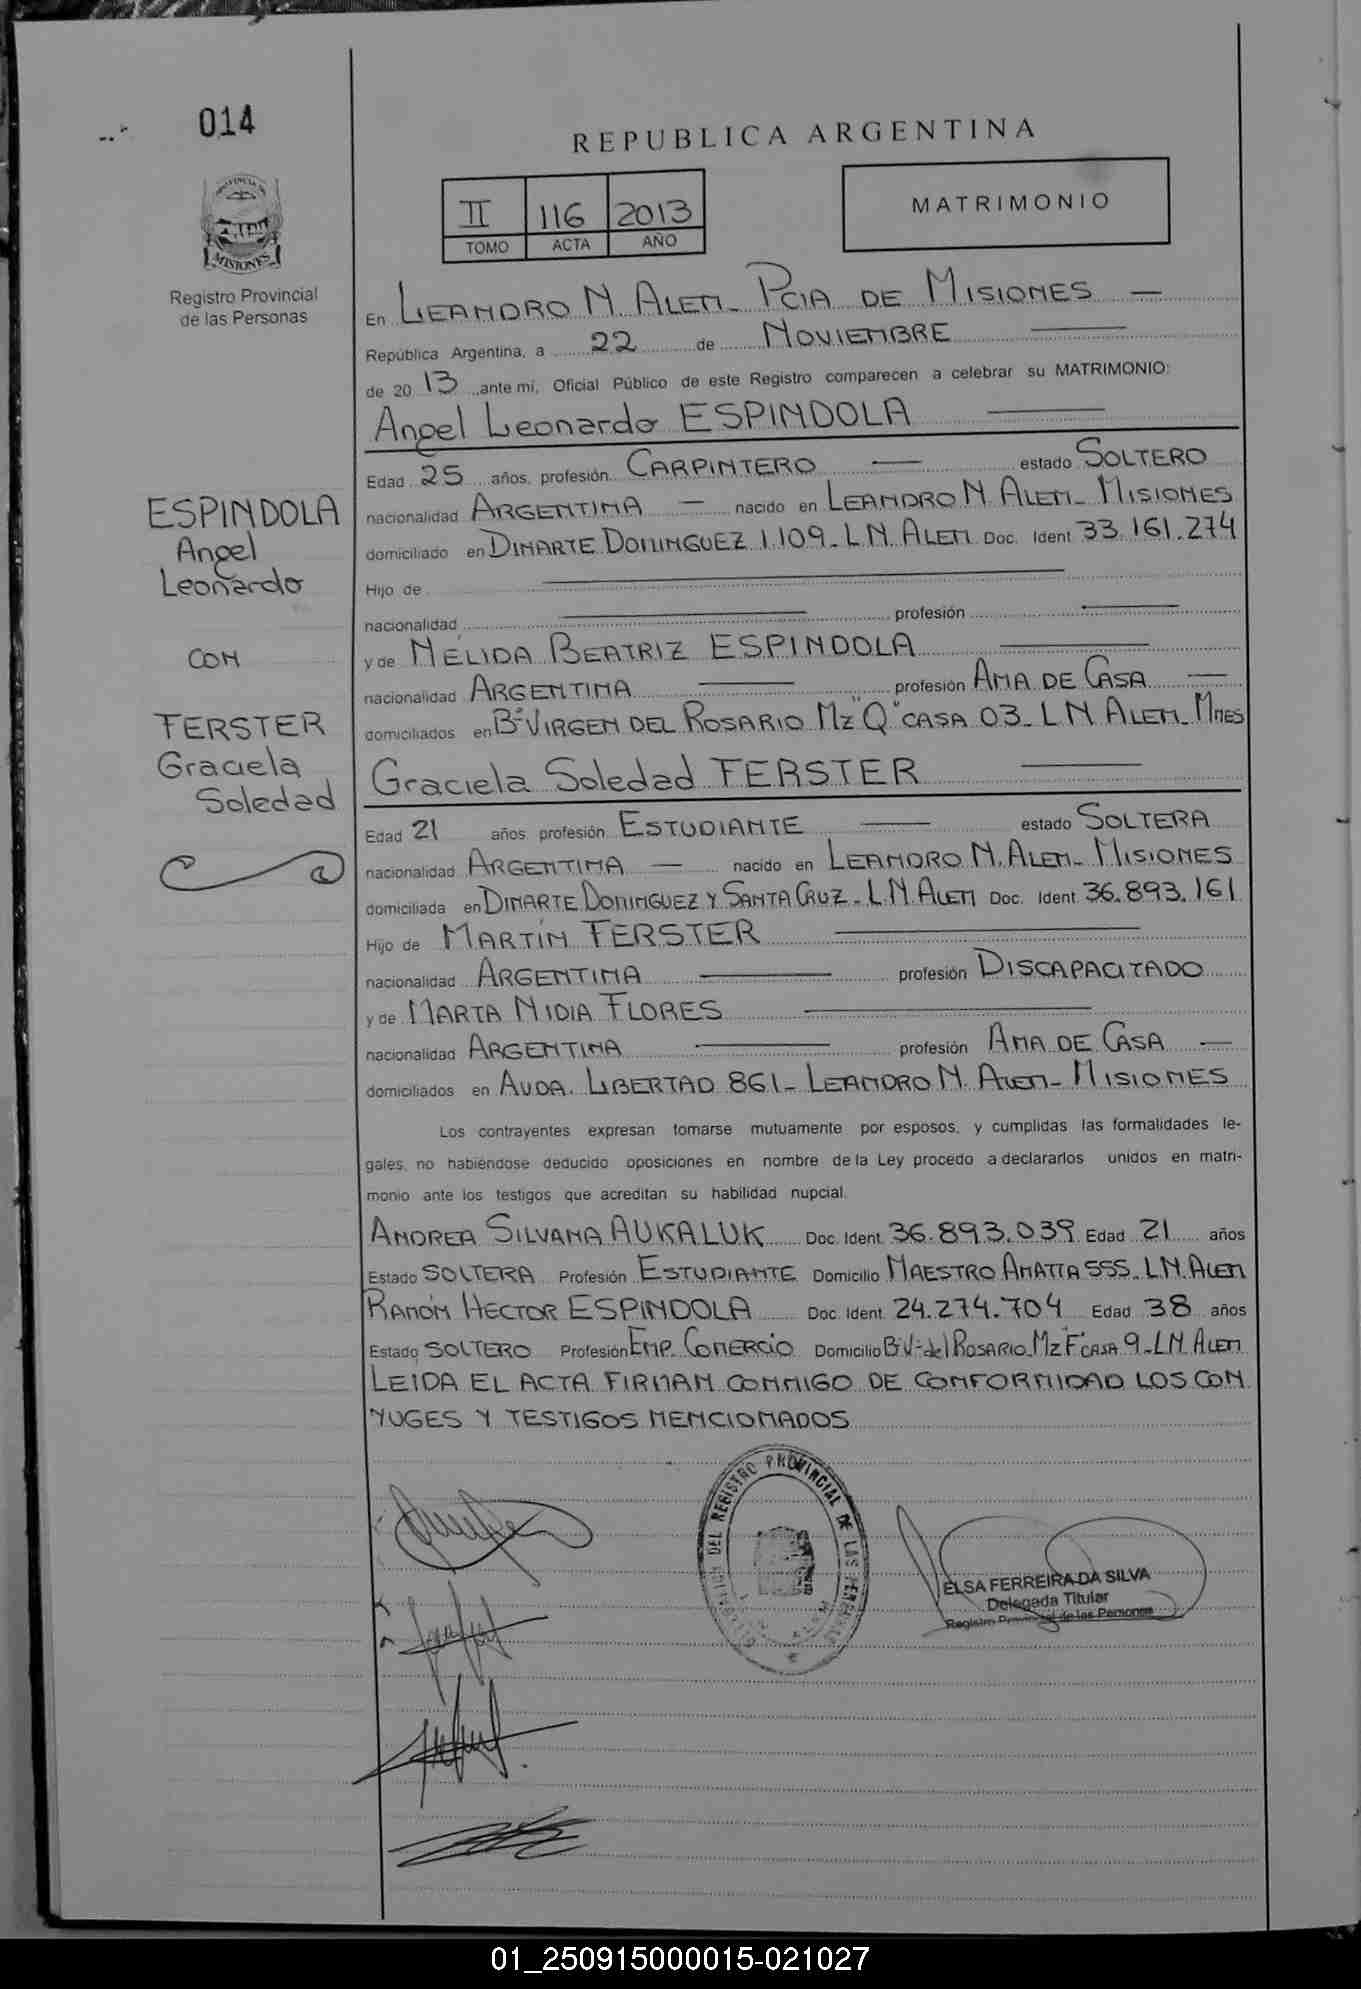 014
REPUBLICA ARGENTINA
PROVINCIA DE
MISIONES
Registro Provincial
de las Personas
II 116 2013
TOMO ACTA AÑO
MATRIMONIO
En LEANDRO N. ALEM - PCIA DE MISIONES —
República Argentina, a 22 de NOVIEMBRE
de 20 13 ante mi, Oficial Público de este Registro comparecen a celebrar su MATRIMONIO:
Angel Leonardo ESPINDOLA
Edad 25 años, profesión CARPINTERO — estado SOLTERO
nacionalidad ARGENTINA — nacido en LEANDRO N. ALEM - MISIONES
domiciliado en DINARTE DOMINGUEZ 1.109 - L.N. ALEM Doc. Ident 33.161.274
Hijo de
nacionalidad profesión
y de NÉLIDA BEATRIZ ESPINDOLA
nacionalidad ARGENTINA profesión AMA DE CASA —
domiciliados en Bº VIRGEN DEL ROSARIO Mz "Q" CASA 03 - L N ALEM - MNES
ESPINDOLA
Angel
Leonardo
CON
FERSTER
Graciela
Soledad
Graciela Soledad FERSTER
Edad 21 años profesión ESTUDIANTE estado SOLTERA
nacionalidad ARGENTINA — nacido en LEANDRO N. ALEM - MISIONES
domiciliada en DINARTE DOMINGUEZ Y SANTA CRUZ - L.N. ALEM Doc. Ident 36.893.161
Hijo de MARTÍN FERSTER
nacionalidad ARGENTINA profesión DISCAPACITADO
y de MARTA NIDIA FLORES
nacionalidad ARGENTINA profesión AMA DE CASA —
domiciliados en AVDA. LIBERTAD 861 - LEANDRO N. ALEM - MISIONES
Los contrayentes expresan tomarse mutuamente por esposos, y cumplidas las formalidades le-
gales, no habiéndose deducido oposiciones en nombre de la Ley procedo a declararlos unidos en matri-
monio ante los testigos que acreditan su habilidad nupcial.
ANDREA SILVANA AUKALUK Doc. Ident. 36.893.039 Edad 21 años
Estado SOLTERA Profesión ESTUDIANTE Domicilio MAESTRO AMATTA 555 - L.N. ALEM
RAMÓN HECTOR ESPINDOLA Doc. Ident. 24.274.704 Edad 38 años
Estado SOLTERO Profesión EMP. COMERCIO Domicilio Bº Vº del ROSARIO Mz "F" CASA 9 - L N. ALEM
LEIDA EL ACTA FIRMAN CONMIGO DE CONFORMIDAD LOS CON
YUGES Y TESTIGOS MENCIONADOS
DEL REGISTRO PROVINCIAL DE LAS PERSONAS
ELSA FERREIRA DA SILVA
Delegada Titular
Registro Provincial de las Personas
01_250915000015-021027